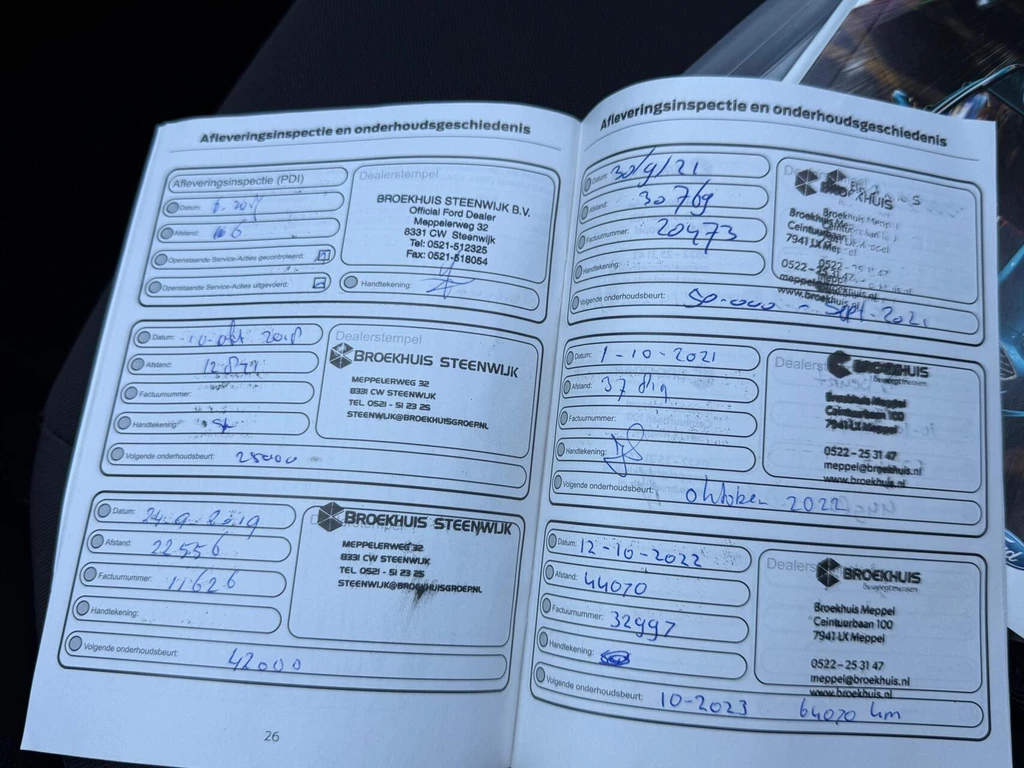 Afleveringsinspectie en onderhoudsgeschiedenis
Afleveringsinspectie (PDI)
Datum:
Afstand:
Openstaande Service-Acties gecontroleerd:
Openstaande Service-Acties uitgevoerd:
Dealerstempel
BROEKHUIS STEENWIJK B.V.
Official Ford Dealer
Meppelerweg 32
8331 CW Steenwijk
Tel: 0521-512325
Fax: 0521-518054
Handtekening:
Datum: 10-okt 2018
Afstand:
Factuurnummer:
Handtekening:
Volgende onderhoudsbeurt: 25000
Dealerstempel
BROEKHUIS STEENWIJK
MEPPELERWEG 32
8331 CW STEENWIJK
TEL 0521 - 51 23 25
STEENWIJK@BROEKHUISGROEP.NL
Datum: 24 9 2019
Afstand: 22556
Factuurnummer: 11626
Handtekening:
Volgende onderhoudsbeurt: 42000
Dealerstempel
BROEKHUIS STEENWIJK
MEPPELERWEG 32
8331 CW STEENWIJK
TEL 0521 - 51 23 25
STEENWIJK@BROEKHUISGROEP.NL
26
Afleveringsinspectie en onderhoudsgeschiedenis
Datum: 30/9/21
Afstand: 30769
Factuurnummer: 20473
Handtekening:
Volgende onderhoudsbeurt: 50.000 - sept-2021
BROEKHUIS
Broekhuis Meppel
Ceintuurbaan
7941 LX Meppel
0522-25 31 47
meppel@broekhuis.nl
www.broekhuis.nl
Datum: 1-10-2021
Afstand: 37
Factuurnummer:
Handtekening:
Volgende onderhoudsbeurt: oktober 2022
BROEKHUIS
Beweegt mensen
Broekhuis Meppel
Ceintuurbaan 100
7941 LX Meppel
0522 - 25 31 47
meppel@broekhuis.nl
www.broekhuis.nl
Datum: 12-10-2022
Afstand: 44070
Factuurnummer: 32997
Handtekening:
Volgende onderhoudsbeurt: 10-2023 64070 km
BROEKHUIS
Beweegt mensen
Broekhuis Meppel
Ceintuurbaan 100
7941 LX Meppel
0522 - 25 31 47
meppel@broekhuis.nl
www.broekhuis.nl